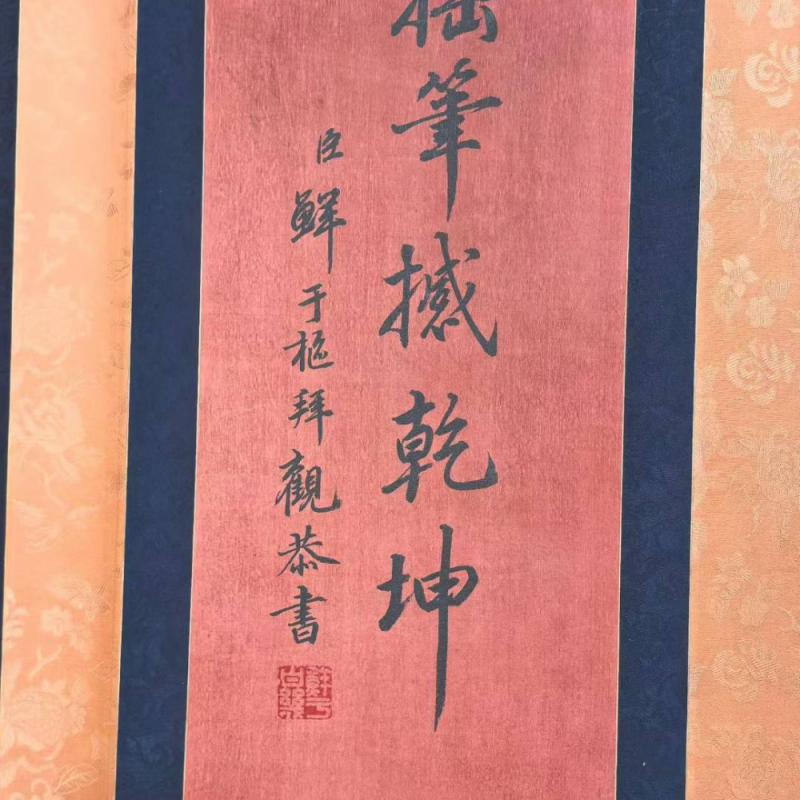 筆撼乾坤
臣鮮于樞拜觀恭書